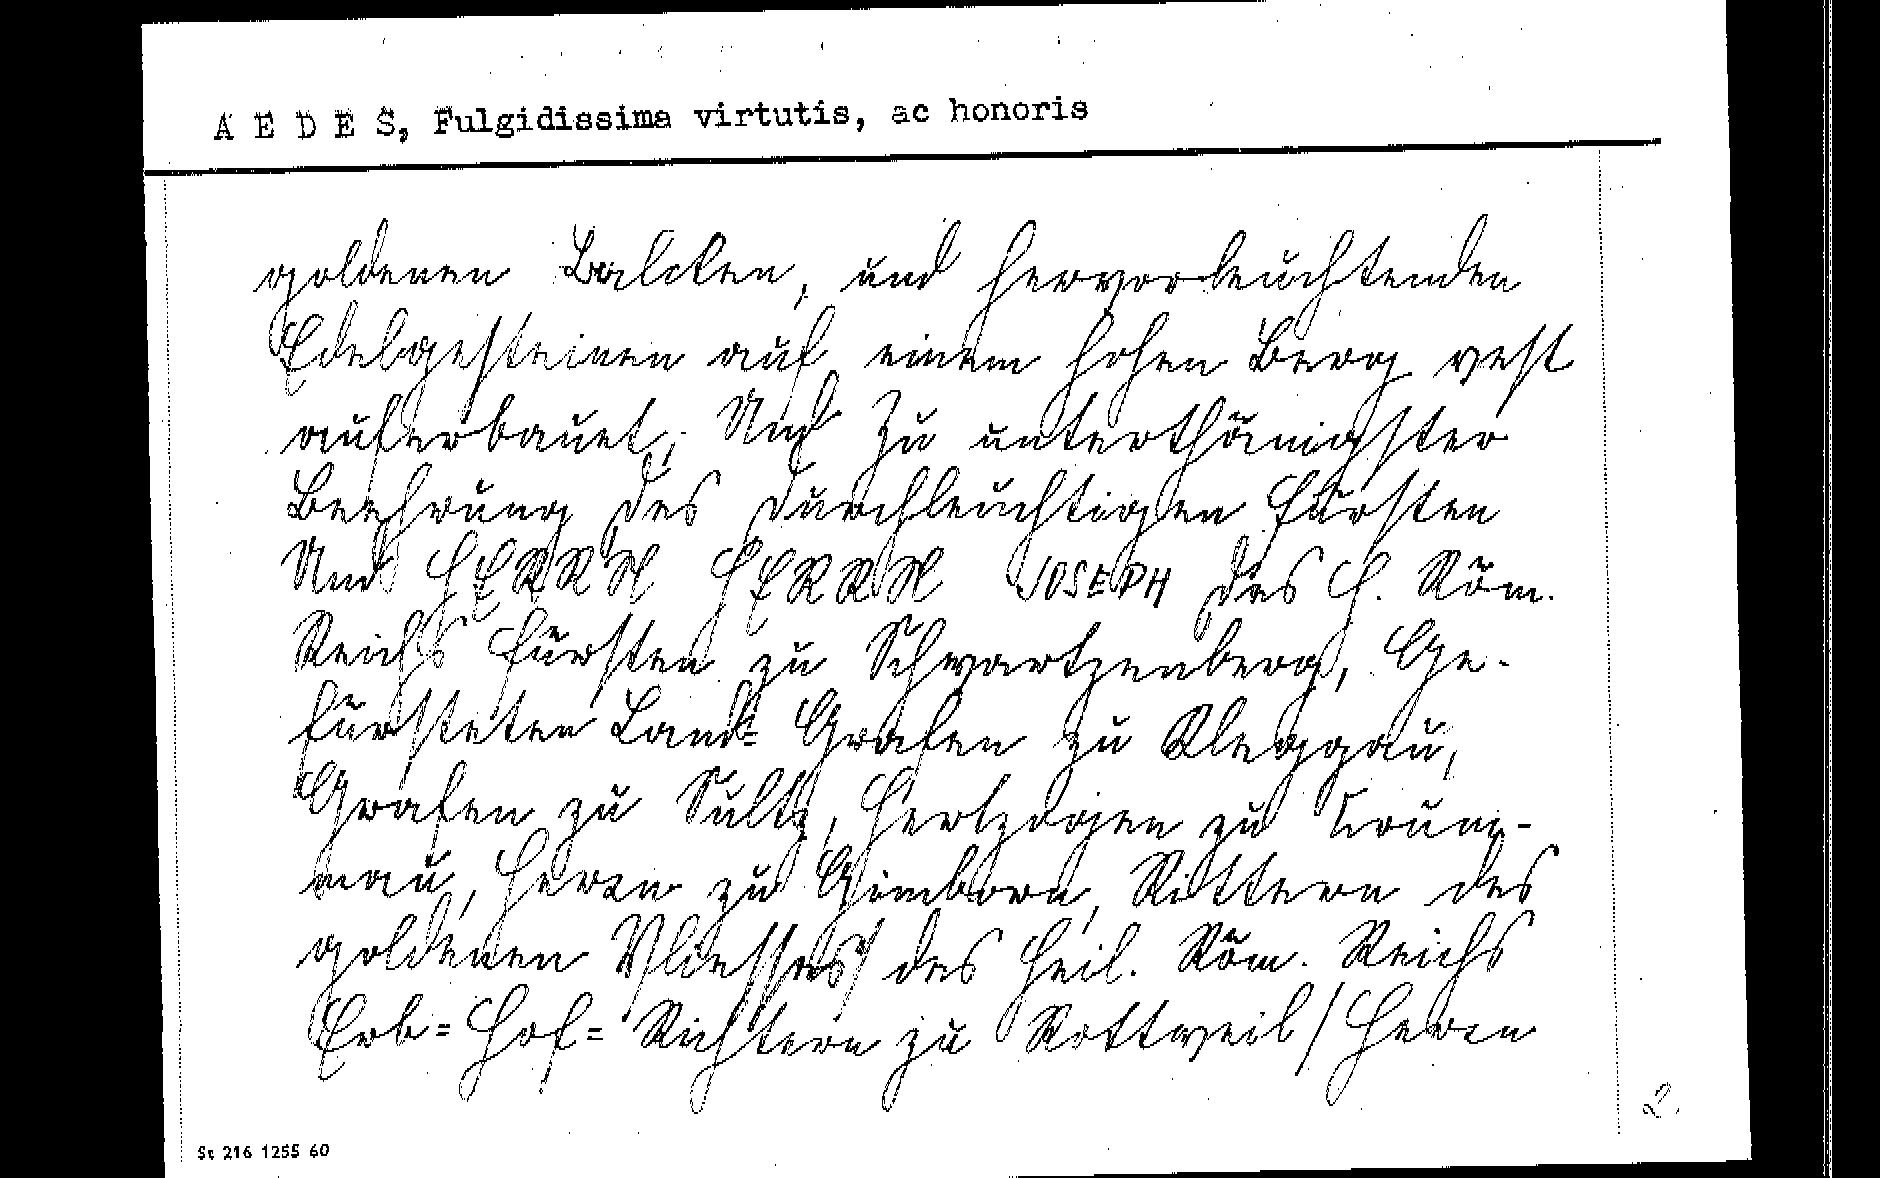 A E D E S, Fulgidissima virtutis, ac honoris
goldenen Balcken, und hervorleuchtenden
Edelgesteinen auf einem hohen Berg vest
auferbauet; Und Zu unterthänigster
Beehrung des durchleuchtigen Fürsten
Und HERRN HERRN JOSEPH des H. Röm.
Reichs Fürsten zu Schwartzenberg, Ge-
fürsteten Land= Grafen zu Kleggau,
Grafen zu Sultz, Hertzogen zu Crum-
mau, Herrn zu Gimborn, Rittern des
goldenen Vliesses/ des Heil. Röm. Reichs
Erb= Hof= Richtern zu Rottweil/ Herrn
2.
St 216 1255 60